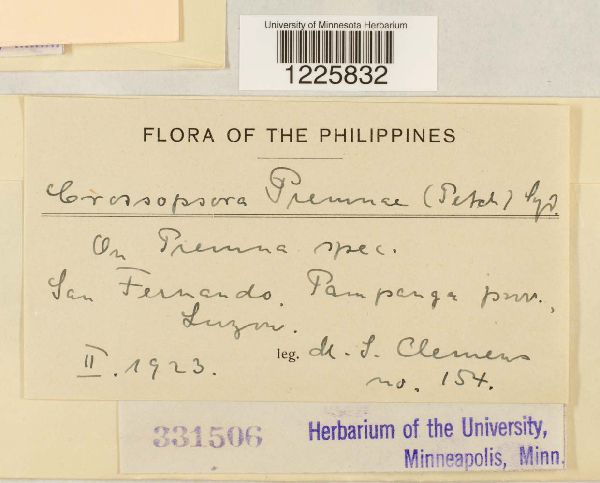 University of Minnesota Herbarium
1225832
FLORA OF THE PHILIPPINES
Crossopsora Premnae (Petch) Syd.
On Premna spec.
San Fernando, Pampanga prov.,
Luzon.
II. 1923.
leg. M. S. Clemens
no. 154.
331506
Herbarium of the University,
Minneapolis, Minn.